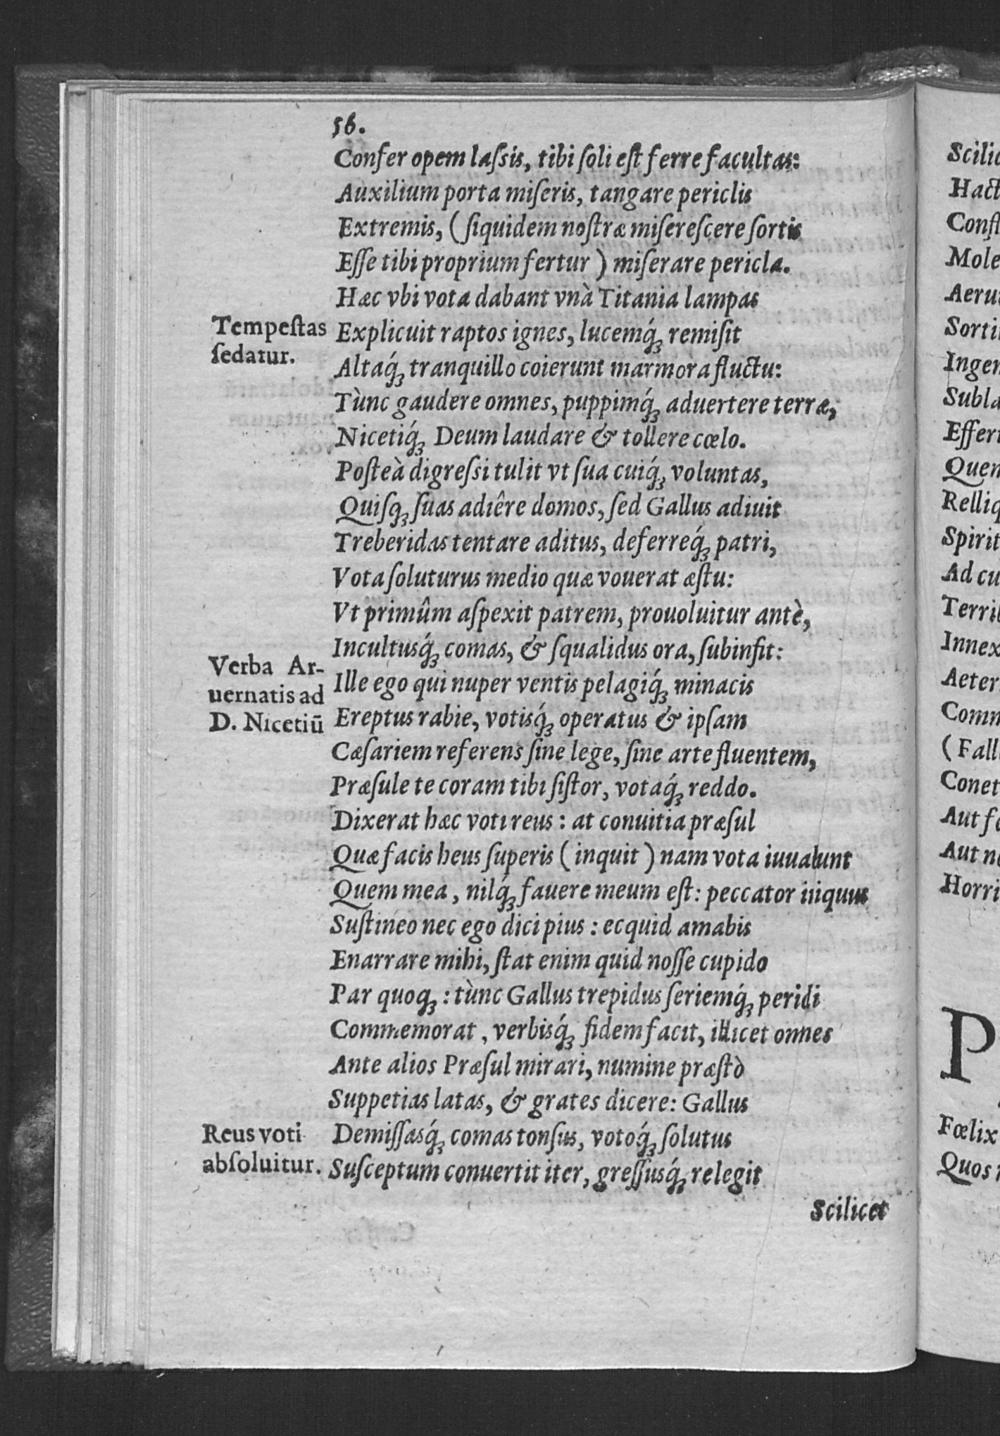 56.
Confer opem laſsis, tibi ſoli eſt ferre facultas:
Auxilium porta miſeris, tangare periclis
Extremis, (ſiquidem noſtræ miſereſcere ſortis
Eſſe tibi proprium fertur) miſerare pericla.
Hæc vbi vota dabant vnà Titania lampas
Tempeſtas
ſedatur.
Explicuit raptos ignes, lucemq́ꝫ remiſit
Altaq́ꝫ tranquillo coierunt marmora fluctu:
Tùnc gaudere omnes, puppimq́ꝫ aduertere terræ,
Nicetiq́ꝫ Deum laudare & tollere cœlo.
Poſteà digreſsi tulit vt ſua cuiq́ꝫ voluntas,
Quiſqꝫ ſuas adiêre domos, ſed Gallus adiuit
Treberidas tentare aditus, deferreq́ꝫ patri,
Vota ſoluturus medio quæ vouerat æſtu:
Vt primûm aſpexit patrem, prouoluitur antè,
Incultusq́ꝫ comas, & ſqualidus ora, ſubinfit:
Verba Ar-
uernatis ad
D. Nicetiū
Ille ego qui nuper ventis pelagiq́ꝫ minacis
Ereptus rabie, votisq́ꝫ operatus & ipſam
Cæſariem referens ſine lege, ſine arte fluentem,
Præſule te coram tibi ſiſtor, votaq́ꝫ reddo.
Dixerat hæc voti reus: at conuitia præſul
Quæ facis heus ſuperis (inquit) nam vota iuuabunt
Quem mea, nilq́ꝫ fauere meum eſt: peccator iniquus
Suſtineo nec ego dici pius: ecquid amabis
Enarrare mihi, ſtat enim quid noſſe cupido
Par quoqꝫ: tùnc Gallus trepidus ſeriemq́ꝫ pericli
Commemorat, verbisq́ꝫ fidem facit, illicet omnes
Ante alios Præſul mirari, numine præſtò
Suppetias latas, & grates dicere: Gallus
Reus voti
abſoluitur.
Demiſſasq́ꝫ comas tonſus, votoq́ꝫ ſolutus
Suſceptum conuertit iter, greſſusq́ꝫ relegit
Scilicet